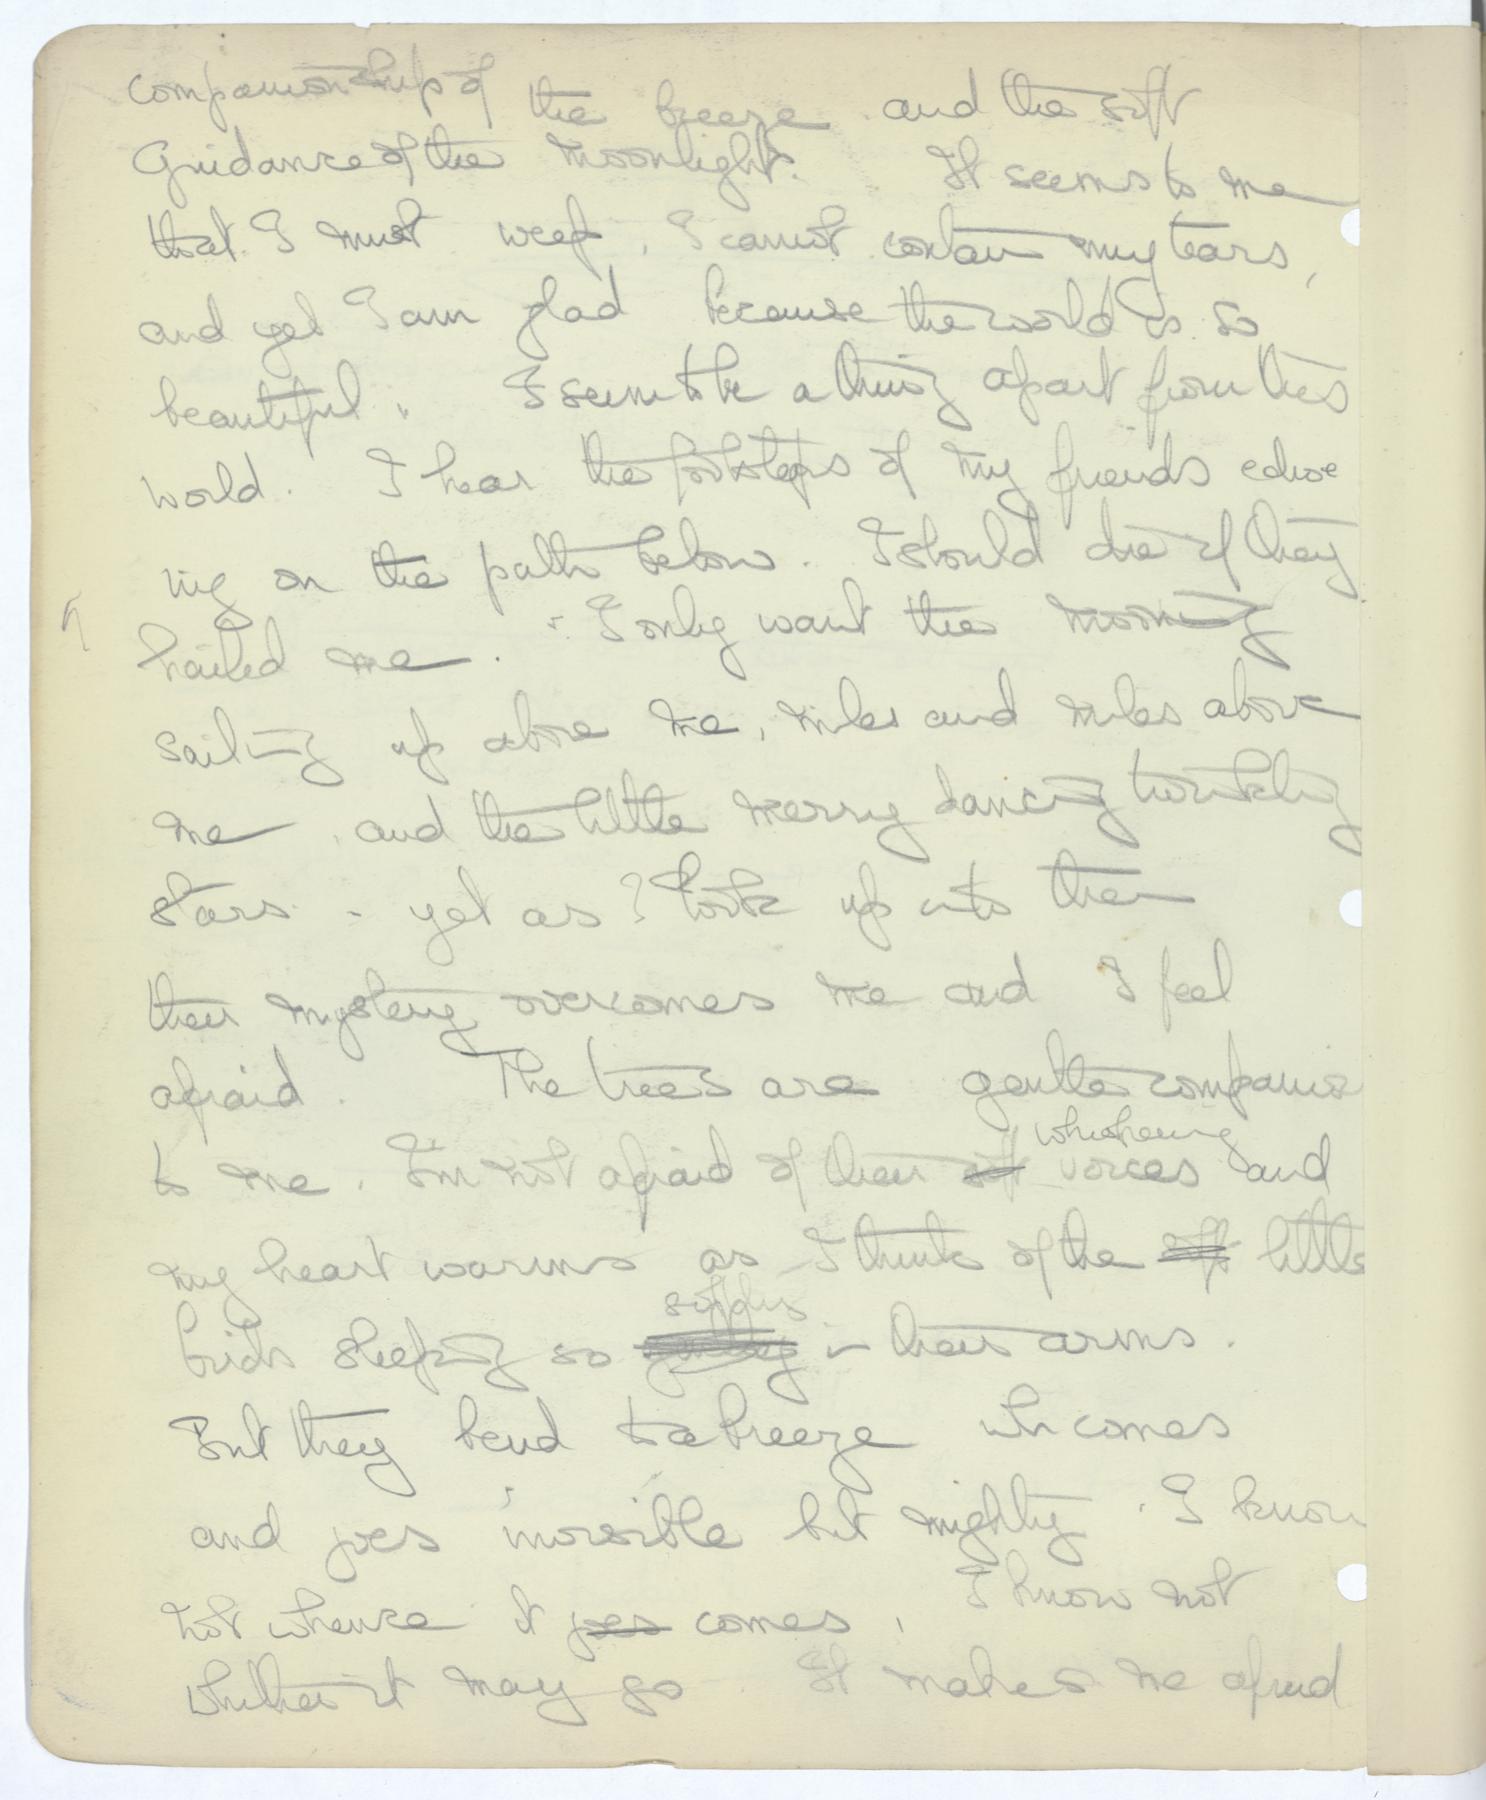 companionship of the breeze and the soft
Guidance of the moonlight. It seems to me
that I must weep, I cannot contain my tears,
and yet I am glad because the world is so
beautiful. I seem to be a thing apart from this
world. I hear the footsteps of my friends echoe
ing on the path below. I should die if they
hailed me. I only want the moon
sailing up above me, miles and miles above
me, and the little merry dancing twinkling
stars - yet as I look up into them
their mystery overcomes me and I feel
afraid. The trees are gentle companio
whispering
to me. I'm not afraid of their soft voices and
my heart warms as I think of the soft little
softly
birds sleeping so in their arms.
But they bend to a breeze wh comes
and goes invisible but mighty. I know
not whence it goes comes, I know not
whither it may go It makes me afraid